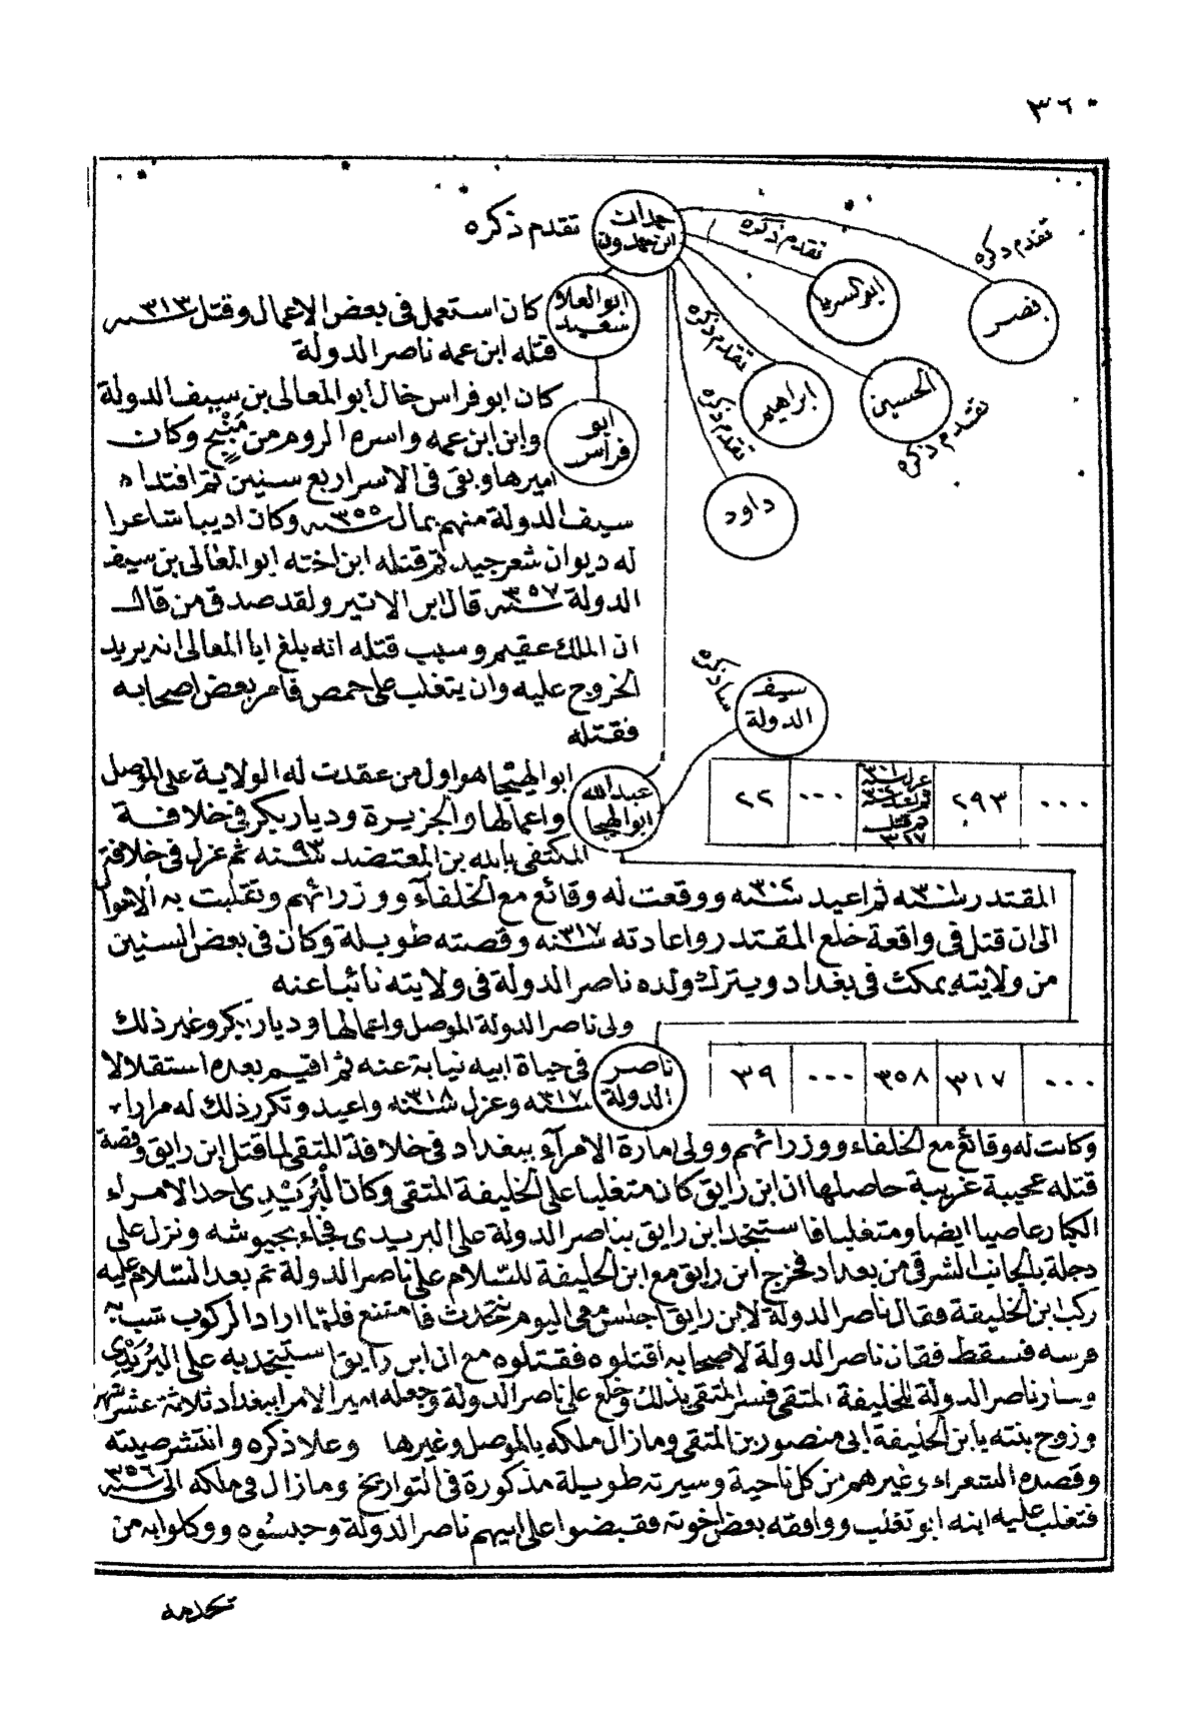 ٣٦٠
حمدان
ابن حمدون
تقدم ذكره
نصر
تقدم ذكره
ابو السرايا
تقدم ذكره
الحسين
تقدم ذكره
ابراهيم
تقدم ذكره
داود
تقدم ذكره
ابو العلا
سعيد
كان استعمل فى بعض الاعمال وقتل سنة ٣١٣
قتله ابن عمه ناصر الدولة
ابو
فراس
كان ابو فراس خال ابو المعالى بن سيف الدولة
وابن ابن عمه واسره الروم من مَنْبِج وكان
اميرها وبقى فى الاسر اربع سنين ثم افتداه
سيف الدولة منهم بمال سنة ٣٥٥ وكان اديبا شاعرا
له ديوان شعر جيد ثم قتله ابن اخته ابو المعالى بن سيف
الدولة سنة ٣٥٧ قال ابن الاثير ولقد صدق من قال
ان الملك عقيم وسبب قتله انه بلغ ابا المعالى انه يريد
الخروج عليه وان يتغلب على حمص فامر بعض اصحابه
فقتله
سيف
الدولة
عبد الله
ابو الهيجا
ابو الهيجا هو اول من عقدت له الولاية على الموصل
واعمالها والجزيرة وديار بكر فى خلافة
المكتفى بالله بن المعتضد سنة ٩٣ ثم عزل فى خلافة
٠٠٠ ٢٩٣ عزل سنة ٣٠١ ثم قتل ٣١٧ ٠٠٠ ٢٢
المقتدر سنة ٣٠١ ثم اعيد سنة ٣٠٢ ووقعت له وقائع مع الخلفآء ووزرائهم وتقلبت به الاحوال
الى ان قتل فى واقعة خلع المقتدر واعادته سنة ٣١٧ وقصته طويلة وكان فى بعض السنين
من ولايته يمكث فى بغداد ويترك ولده ناصر الدولة فى ولايته نائبا عنه
ناصر
الدولة
ولى ناصر الدولة الموصل واعمالها وديار بكر وغير ذلك
فى حياة ابيه نيابة عنه ثم اقيم بعده استقلالا
سنة ٣١٧ وعزل سنة ٣١٨ واعيد وتكرر ذلك له مرارا
٠٠٠ ٣١٧ ٣٥٨ ٠٠٠ ٣٩
وكانت له وقائع مع الخلفاء ووزرائهم وولى امارة الامرآء ببغداد فى خلافة المتقى لما قتل ابن رايق وقصة
قتله عجيبة غريبة حاصلها ان ابن رايق كان متغلبا على الخليفة المتقى وكان البُرَيْدِى احد الامراء
الكبار عاصيا ايضا ومتغلبا فاستنجد ابن رايق بناصر الدولة على البريدى فجاء بجيوشه ونزل على
دجلة بالجانب الشرقى من بغداد فخرج ابن رايق مع ابن الخليفة للسلام على ناصر الدولة ثم بعد السلام عليه
ركب ابن الخليفة فقال ناصر الدولة لابن رايق اجلس معى اليوم نتحدث فامتنع فلما اراد الركوب شب به
فرسه فسقط فقال ناصر الدولة لاصحابه اقتلوه فقتلوه مع ان ابن رايق استنجد به على البُرَيْدِى
وسار ناصر الدولة للخليفة المتقى فسر المتقى بذلك وخلع على ناصر الدولة وجعله امير الامرا ببغداد ثلاثة عشر شهرا
وزوج بنته بابن الخليفة ابى منصور بن المتقى ومازال ملكه بالموصل وغيرها وعلا ذكره وانتشر صيته
وقصده الشعراء وغيرهم من كل ناحية وسيرته طويلة مذكورة فى التواريخ ومازال فى ملكه الى سنة ٣٥٦
فتغلب عليه ابنه ابو تغلب ووافقه بعض اخوته فقبضوا على ابيهم ناصر الدولة وحبسُوه ووكلوا به من